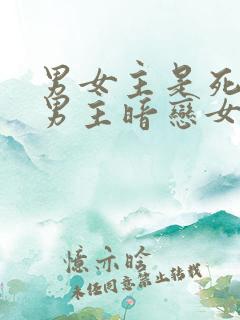 男女主是死
男主暗戀女
憶亦晗
未经同意禁止转载